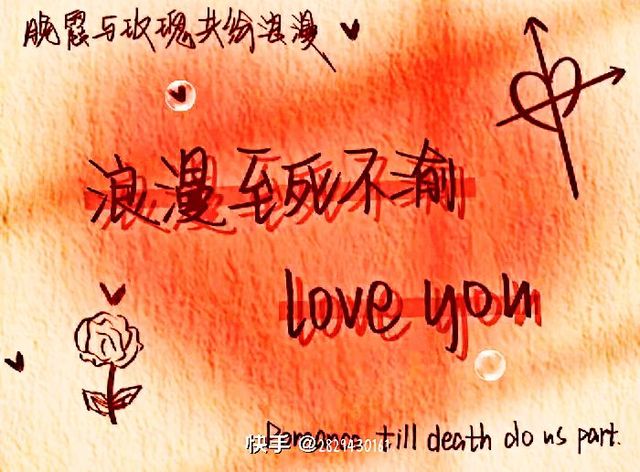 晚霞与玫瑰共绘浪漫
浪漫至死不渝
love you
till death do us part.
快手 @2829430161